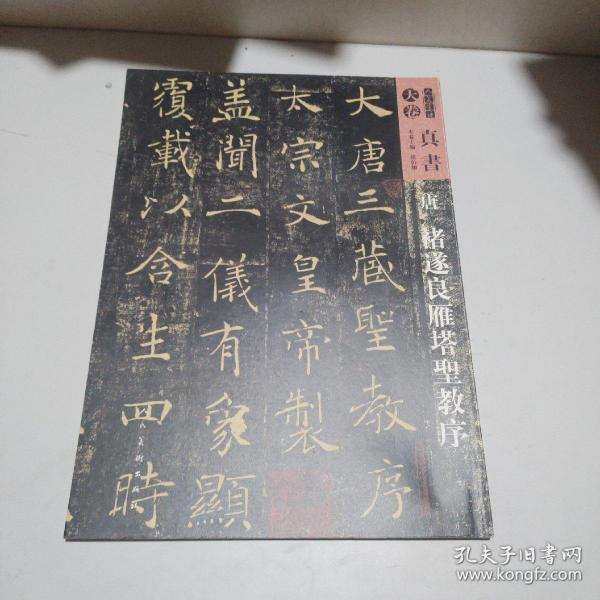 大唐三藏聖教序
太宗文皇帝製
盖聞二儀有象顯
覆載以含生四時
大卷
真書
唐 褚遂良雁塔聖教序
美術出版社
孔夫子旧书网
www.kongfz.com